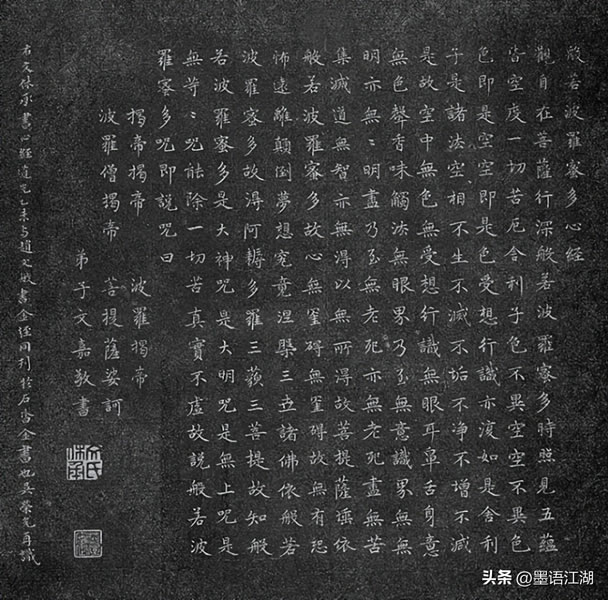 般若波羅蜜多心經
觀自在菩薩行深般若波羅蜜多時照見五蘊
皆空度一切苦厄舍利子色不異空空不異色
色即是空空即是色受想行識亦復如是舍利
子是諸法空相不生不滅不垢不淨不增不減
是故空中無色無受想行識無眼耳鼻舌身意
無色聲香味觸法無眼界乃至無意識界無無
明亦無〻明盡乃至無老死亦無老死盡無苦
集滅道無智亦無得以無所得故菩提薩埵依
般若波羅蜜多故心無罣碍無罣碍故無有恐
怖遠離顛倒夢想究竟涅槃三世諸佛依般若
波羅蜜多故得阿耨多羅三藐三菩提故知般
若波羅蜜多是大神呪是大明呪是無上呪是
無等〻呪能除一切苦真實不虛故說般若波
羅蜜多呪即說呪曰
揭帝揭帝 波羅揭帝
波羅僧揭帝 菩提薩婆訶
弟子文嘉敬書
文氏休承
右文休承書心經乙未与趙文敏書金經同刊於石皆全書也吳榮光再識
头条 @墨语江湖